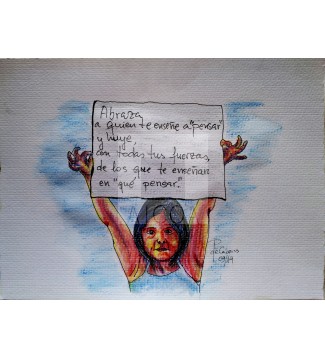 Abraza,
a quien te enseñe a "pensar"
y huye,
con todas tus fuerzas,
de los que te enseñan
en "qué pensar."